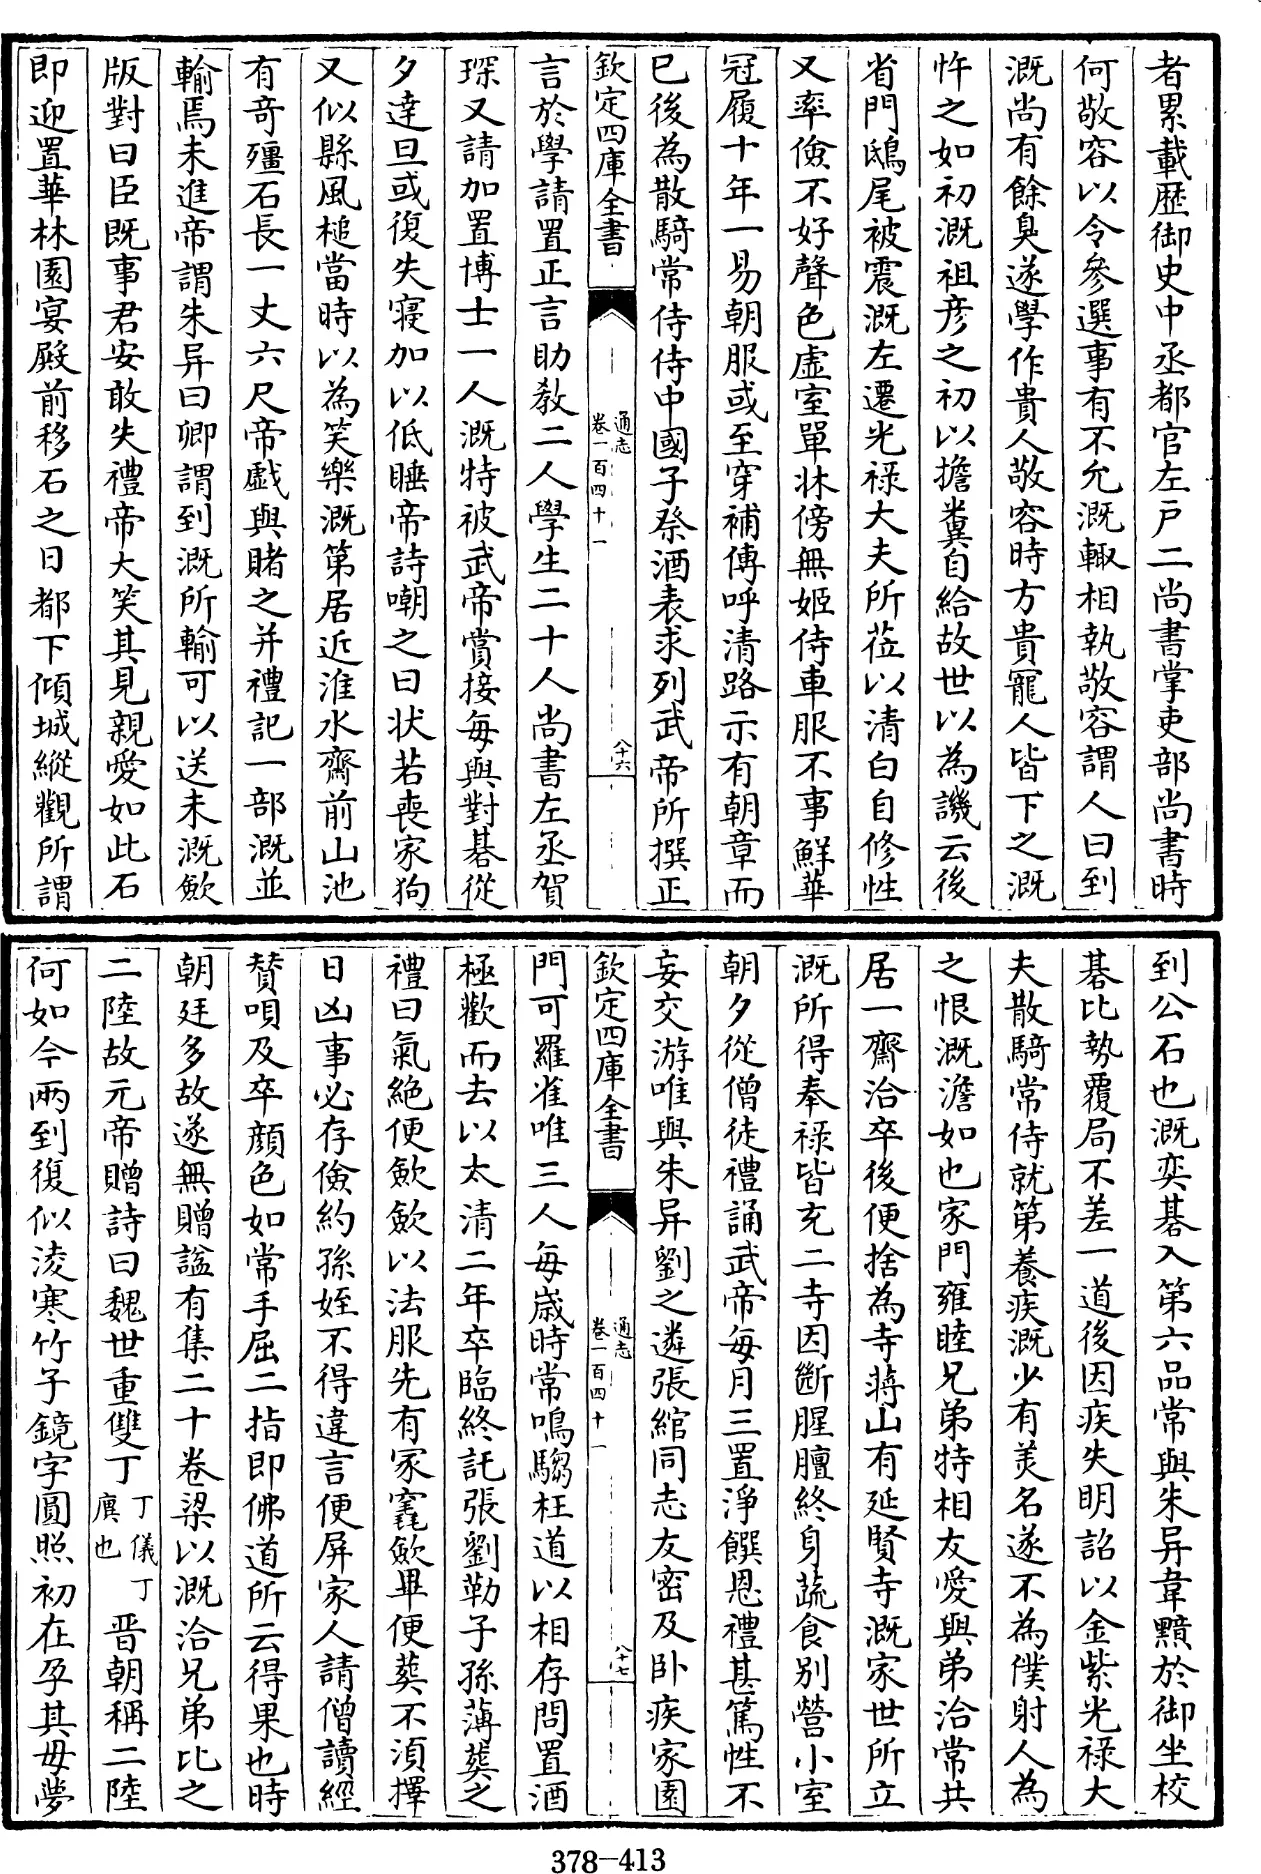 者累載歷御史中丞都官左戸二尚書掌吏部尚書時
何敬容以令參選事有不允溉輒相執敬容謂人曰到
溉尚有餘臭遂學作貴人敬容時方貴寵人皆下之溉
忤之如初溉祖彦之初以擔糞自給故世以為譏云後
省門鴟尾被震溉左遷光禄大夫所莅以清白自修性
又率儉不好聲色虛室單牀傍無姬侍車服不事鮮華
冠履十年一易朝服或至穿補傳呼清路示有朝章而
已後為散騎常侍侍中國子祭酒表求列武帝所撰正
欽定四庫全書
通志
卷一百四十一
八十六
言於學請置正言助教二人學生二十人尚書左丞賀
琛又請加置博士一人溉特被武帝賞接每與對棊從
夕達旦或復失寢加以低睡帝詩嘲之曰状若喪家狗
又似縣風槌當時以為笑樂溉第居近淮水齋前山池
有奇礓石長一丈六尺帝戲與賭之并禮記一部溉並
輸焉未進帝謂朱异曰卿謂到溉所輸可以送未溉歛
版對曰臣既事君安敢失禮帝大笑其見親愛如此石
即迎置華林園宴殿前移石之日都下傾城縱觀所謂
到公石也溉奕棊入第六品常與朱异韋黯於御坐校
棊比勢覆局不差一道後因疾失明詔以金紫光禄大
夫散騎常侍就第養疾溉少有美名遂不為僕射人為
之恨溉澹如也家門雍睦兄弟特相友愛與弟洽常共
居一齋洽卒後便捨為寺蔣山有延賢寺溉家世所立
溉所得奉禄皆充二寺因斷腥膻終身蔬食别營小室
朝夕從僧徒禮誦武帝每月三置淨饌恩禮甚篤性不
妄交游唯與朱异劉之遴張綰同志友密及卧疾家園
欽定四庫全書
通志
卷一百四十一
八十七
門可羅雀唯三人每歲時常鳴騶枉道以相存問置酒
極歡而去以太清二年卒臨終託張劉勒子孫薄葬之
禮曰氣絶便歛歛以法服先有冢窀歛畢便葬不湏擇
日凶事必存儉約孫姪不得違言便屏家人請僧讀經
賛唄及卒顔色如常手屈二指即佛道所云得果也時
朝廷多故遂無贈謚有集二十卷梁以溉洽兄弟比之
二陸故元帝贈詩曰魏世重雙丁丁儀丁廙也晋朝稱二陸
何如今兩到復似淩寒竹子鏡字圓照初在孕其母夢
378-413